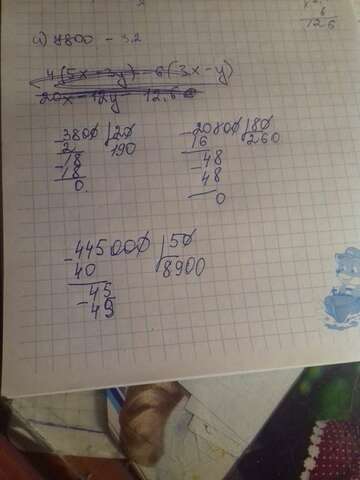 126
а) 7800 - 32
4(5x - 3y) - 6(3x - y)
20x - 12y - 12,6
3800 | 20
2 190
- 18
18
0
20800 | 80
16 260
- 48
- 48
0
- 445000 | 50
40 8900
- 45
45